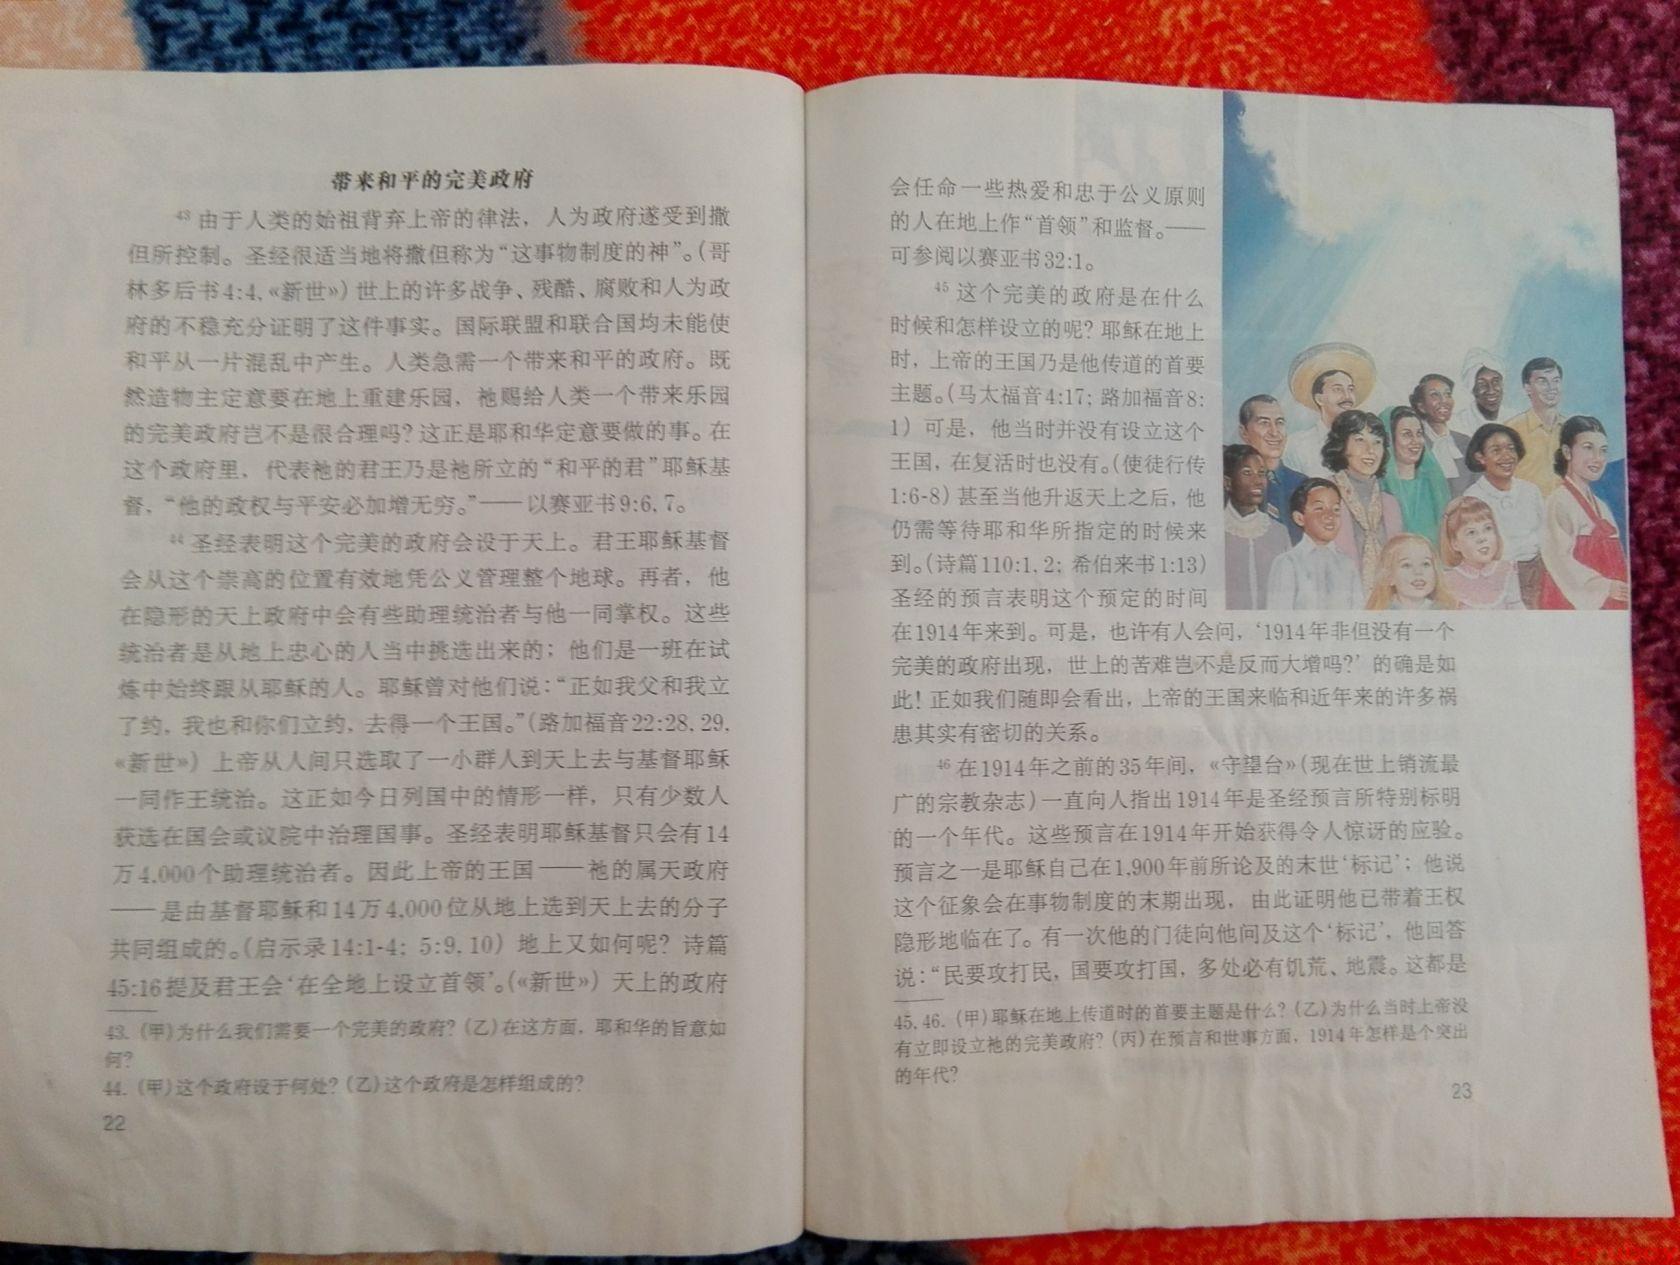 带来和平的完美政府
43 由于人类的始祖背弃上帝的律法，人为政府遂受到撒
但所控制。圣经很适当地将撒但称为“这事物制度的神”。（哥
林多后书4:4,《新世》）世上的许多战争、残酷、腐败和人为政
府的不稳充分证明了这件事实。国际联盟和联合国均未能使
和平从一片混乱中产生。人类急需一个带来和平的政府。既
然造物主定意要在地上重建乐园，祂赐给人类一个带来乐园
的完美政府岂不是很合理吗？这正是耶和华定意要做的事。在
这个政府里，代表祂的君王乃是祂所立的“和平的君”耶稣基
督，“他的政权与平安必加增无穷。”——以赛亚书9:6,7。
44 圣经表明这个完美的政府会设于天上。君王耶稣基督
会从这个崇高的位置有效地凭公义管理整个地球。再者，他
在隐形的天上政府中会有些助理统治者与他一同掌权。这些
统治者是从地上忠心的人当中挑选出来的；他们是一班在试
炼中始终跟从耶稣的人。耶稣曾对他们说：“正如我父和我立
了约，我也和你们立约，去得一个王国。”（路加福音22:28,29,
《新世》）上帝从人间只选取了一小群人到天上去与基督耶稣
一同作王统治。这正如今日列国中的情形一样，只有少数人
获选在国会或议院中治理国事。圣经表明耶稣基督只会有14
万4,000个助理统治者。因此上帝的王国——祂的属天政府
——是由基督耶稣和14万4,000位从地上选到天上去的分子
共同组成的。（启示录14:1-4；5:9,10）地上又如何呢？诗篇
45:16提及君王会‘在全地上设立首领’。（《新世》）天上的政府
43.（甲）为什么我们需要一个完美的政府？（乙）在这方面，耶和华的旨意如
何？
44.（甲）这个政府设于何处？（乙）这个政府是怎样组成的？
22
会任命一些热爱和忠于公义原则
的人在地上作“首领”和监督。——
可参阅以赛亚书32:1。
45 这个完美的政府是在什么
时候和怎样设立的呢？耶稣在地上
时，上帝的王国乃是他传道的首要
主题。（马太福音4:17；路加福音8:
1）可是，他当时并没有设立这个
王国，在复活时也没有。（使徒行传
1:6-8）甚至当他升返天上之后，他
仍需等待耶和华所指定的时候来
到。（诗篇110:1,2；希伯来书1:13）
圣经的预言表明这个预定的时间
在1914年来到。可是，也许有人会问，‘1914年非但没有一个
完美的政府出现，世上的苦难岂不是反而大增吗？’的确是如
此！正如我们随即会看出，上帝的王国来临和近年来的许多祸
患其实有密切的关系。
46 在1914年之前的35年间，《守望台》（现在世上销流最
广的宗教杂志）一直向人指出1914年是圣经预言所特别标明
的一个年代。这些预言在1914年开始获得令人惊讶的应验。
预言之一是耶稣自己在1,900年前所论及的末世‘标记’；他说
这个征象会在事物制度的末期出现，由此证明他已带着王权
隐形地临在了。有一次他的门徒向他问及这个‘标记’，他回答
说：“民要攻打民，国要攻打国，多处必有饥荒、地震。这都是
45,46.（甲）耶稣在地上传道时的首要主题是什么？（乙）为什么当时上帝没
有立即设立祂的完美政府？（丙）在预言和世事方面，1914年怎样是个突出
的年代？
23